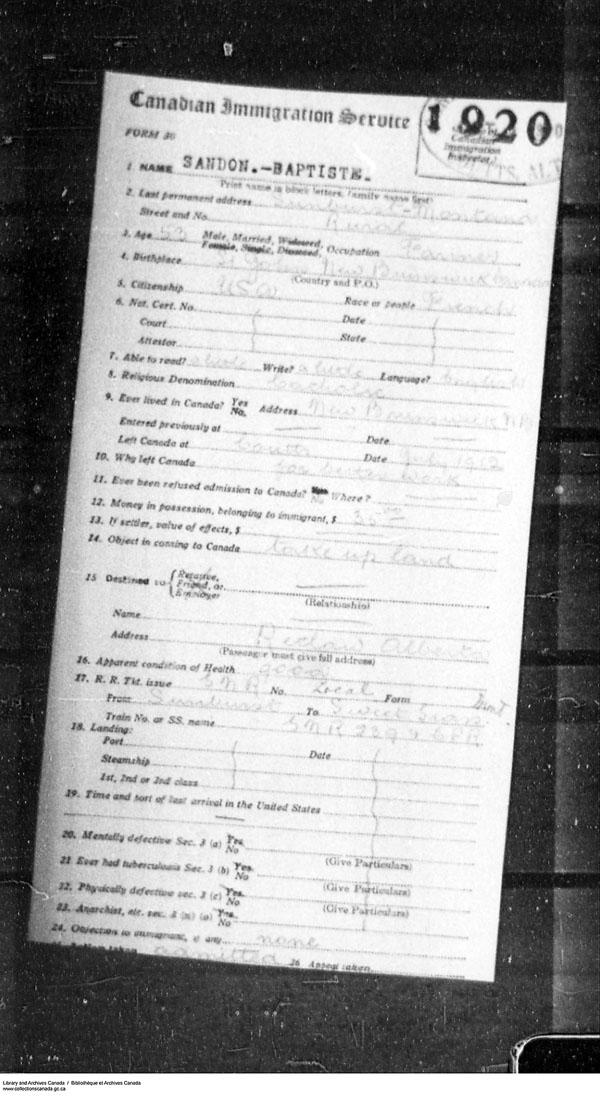 Canadian Immigration Service 1920
Canadian
Immigration
Inspector.
FORM 30
1. NAME SANDON.-BAPTISTE.
Print name in block letters, family name first)
2. Last permanent address Sunburst-Montana
Street and No. Rural
3. Age 53 Male, Married, Widowed, Female, Single, Divorced, Occupation Farmer
4. Birthplace St John New Brunswick Canada
(Country and P.O.)
5. Citizenship USA Race or people French
6. Nat. Cert. No. Date
Court State
Attestor
7. Able to read? a little Write? a little Language? English
8. Religious Denomination Catholic
9. Ever lived in Canada? Yes No. Address New Brunswick NB
Entered previously at Date
Left Canada at Coutts Date July 1912
10. Why left Canada for better work
11. Ever been refused admission to Canada? Yes No Where?
12. Money in possession, belonging to immigrant, $ 35
13. If settler, value of effects, $
14. Object in coming to Canada take up land
15 Destined to Relative, Friend, or Employer
(Relationship)
Name
Address Alberta
(Passenger must give full address)
16. Apparent condition of Health good
17. R. R. Tkt. issue GNR No. Local Form
From Sunburst To Sweet Grass
Train No. or SS. name GNR 239 & CPR
18. Landing:
Port Date
Steamship
1st, 2nd or 3rd class
19. Time and port of last arrival in the United States
20. Mentally defective Sec. 3 (a) Yes No
(Give Particulars)
21 Ever had tuberculosis Sec. 3 (b) Yes. No
(Give Particulars)
22. Physically defective sec. 3 (c) Yes. No
(Give Particulars)
23. Anarchist, etc. sec. 3 (n) (o) Yes. No
24. Objection to immigrant, if any none
Action taken admitted 26 Appeal taken
Library and Archives Canada / Bibliothèque et Archives Canada
www.collectionscanada.gc.ca